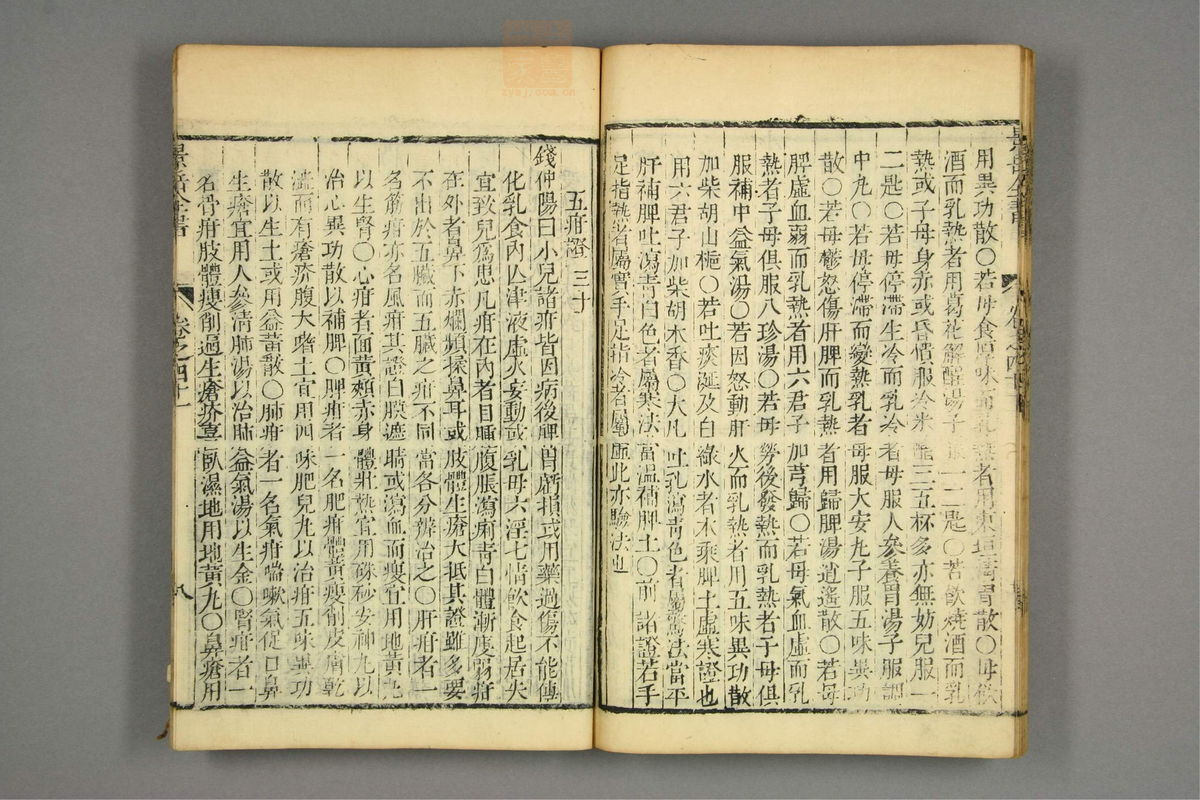 用異功散〇若母食厚味而乳熱者用東垣清胃散〇母飲
酒而乳熱者用葛花解酲湯子服一二匙〇若飲燒酒而乳
熱或子母身赤或昏憒服冷米醋三五杯多亦無妨兒服一
二匙〇若母停滯生冷而乳冷者母服人參養胃湯子服調
中丸〇若母停滯而變熱乳者母服大安丸子服五味異功
散〇若母鬱怒傷肝脾而乳熱者用歸脾湯逍遙散〇若母
脾虛血弱而乳熱者用六君子加芎歸〇若母氣血虛而乳
熱者子母俱服八珍湯〇若母勞後發熱而乳熱者子母俱
服補中益氣湯〇若因怒動肝火而乳熱者用五味異功散
加柴胡山梔〇若吐痰涎及白綠水者木乘脾土虛寒證也
用六君子加柴胡木香〇大凡吐乳瀉青色者屬驚法當平
肝補脾吐瀉青白色者屬寒法當溫補脾土〇前諸證若手
足指熱者屬實手足指冷者屬虛此亦驗法也
五疳證 三十
錢仲陽曰小兒諸疳皆因病後脾胃虧損或用藥過傷不能傳
化乳食內亡津液虛火妄動或乳母六淫七情飲食起居失
宜致兒為患凡疳在內者目腫腹脹瀉痢青白體漸虛弱疳
在外者鼻下赤爛頻揉鼻耳或肢體生瘡大抵其證雖多要
不出於五臟而五臟之疳不同當各分辨治之〇肝疳者一
名筋疳亦名風疳其證白膜遮睛或瀉血而瘦宜用地黃丸
以生腎〇心疳者面黃頰赤身體壯熱宜用硃砂安神丸以
治心異功散以補脾〇脾疳者一名肥疳體黃瘦削皮膚乾
澁而有瘡疥腹大嗜土宜用四味肥兒丸以治疳五味異功
散以生土或用益黃散〇肺疳者一名氣疳喘嗽氣促口鼻
生瘡宜用人參清肺湯以治肺益氣湯以生金〇腎疳者一
名骨疳肢體瘦削遍生瘡疥喜臥濕地用地黃丸〇鼻瘡用
景岳全書
卷之四十一
八
景岳全書
卷之四十
zysj.com.cn